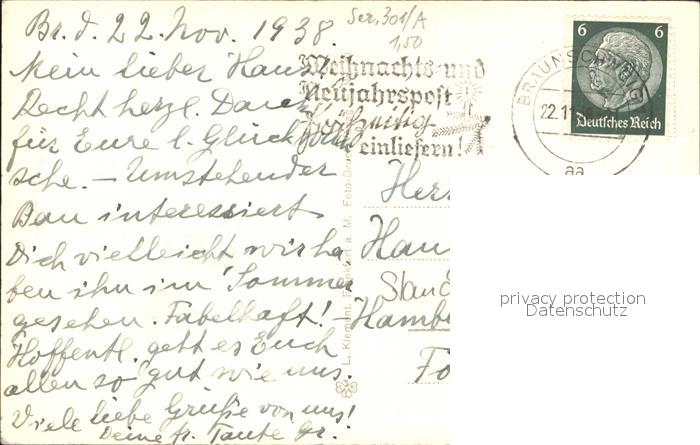 Br. d. 22. Nov. 1938.
Ser. 301/A
1,50
Mein lieber Hans
Recht herzl. Dank
für Eure l. Glückwün
sche. – Umstehender
Bau interessiert
Dich vielleicht wir ha
ben ihn im Sommer
gesehen. Fabelhaft!
Hoffentl. geht es Euch
allen so gut wie uns.
Viele liebe Grüße von uns!
Deine fr. Tante Gr.
Weihnachts- und
Neujahrspost
frühzeitig
einliefern!
BRAUNSCHWEIG
22.11.
aa
6 6
Deutsches Reich
Herr
Han
Hamb
L. Klement, Frankfurt a. M. Foto-Druck
privacy protection
Datenschutz